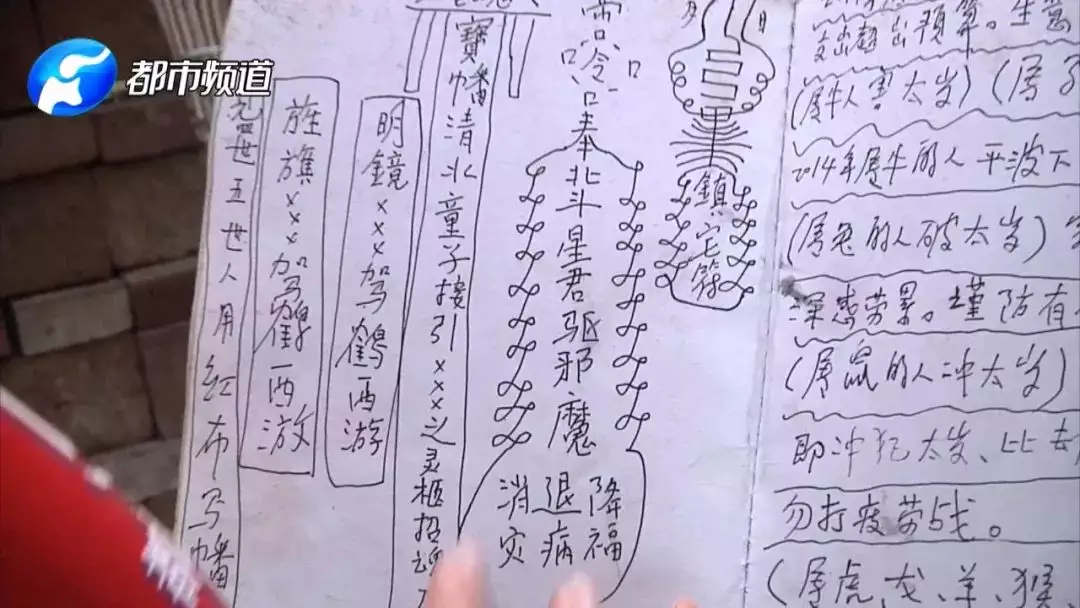 都市频道
盖世五世人用红布写幡
旌旗×××驾鹤西游
明鏡×××驾鹤西游
寶幡清北童子接引×××之灵柩招魂
奉北斗星君驱邪魔
消灾退病降福
月
日
鎮宅符
支出超出预算。生意
(属牛人害太岁)(属
2014年属牛的人平波
(属兔的人破太岁)
深感劳累。谨防有
(属鼠的人冲太岁)
即冲犯太岁、比去
勿打疲劳战。
(属虎、龙、羊、猴、